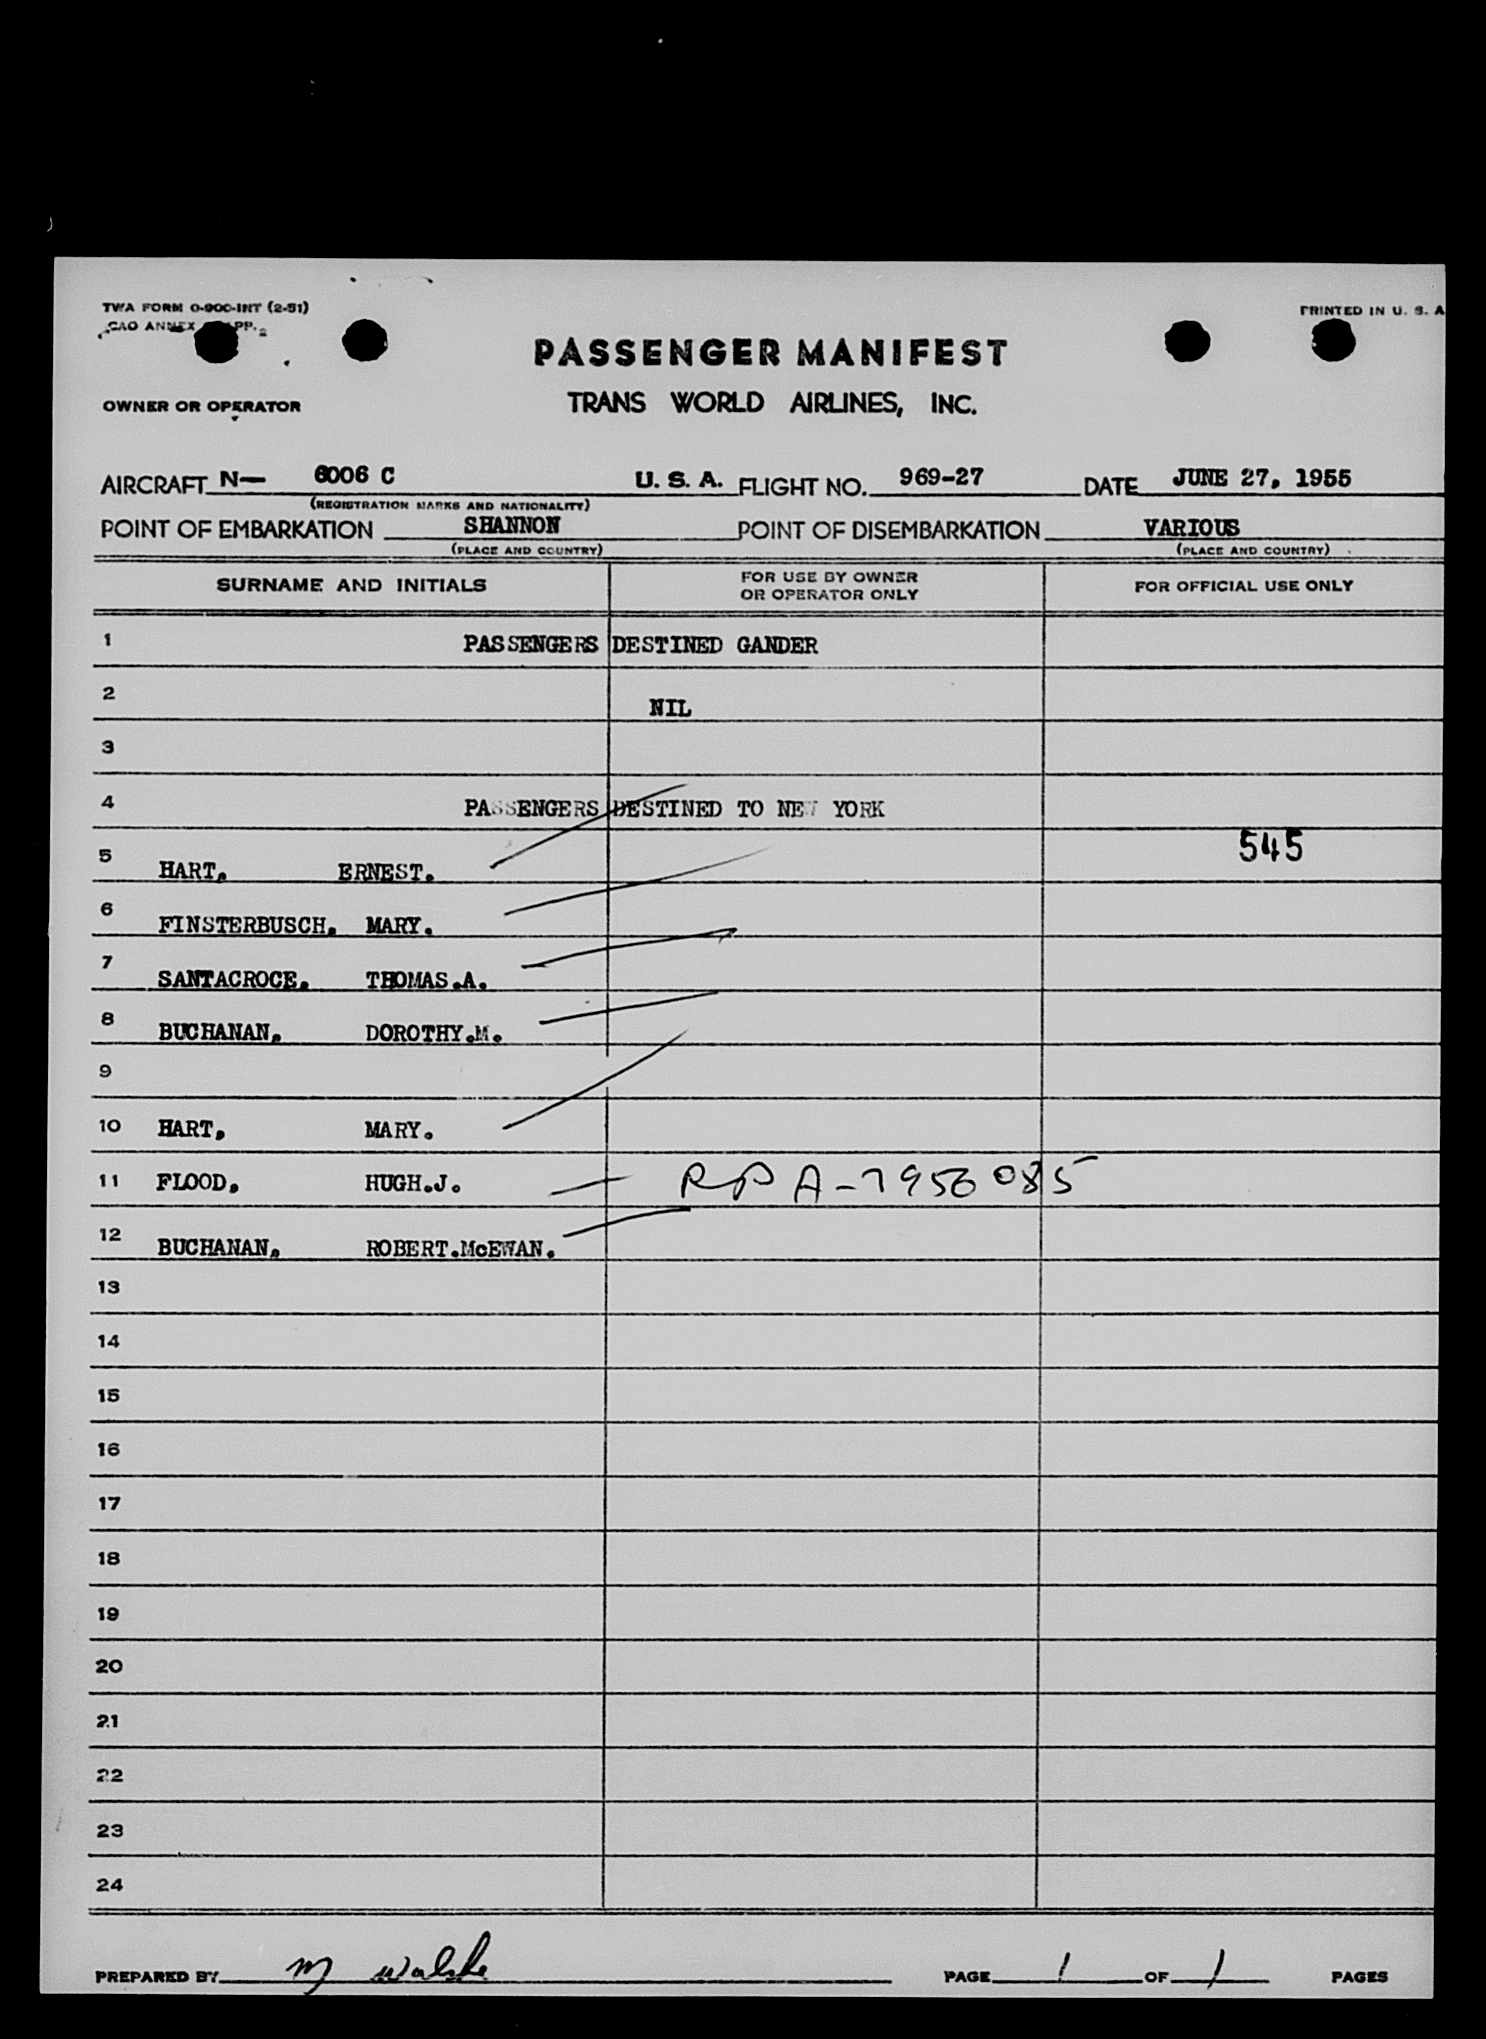 TWA FORM O-900-INT (2-51)
PRINTED IN U. S. A
ICAO ANNEX APP. 2
PASSENGER MANIFEST
OWNER OR OPERATOR
TRANS WORLD AIRLINES, INC.
AIRCRAFT N— 6006 C U. S. A. FLIGHT NO. 969-27 DATE JUNE 27, 1955
(REGISTRATION MARKS AND NATIONALITY)
POINT OF EMBARKATION SHANNON POINT OF DISEMBARKATION VARIOUS
(PLACE AND COUNTRY) (PLACE AND COUNTRY)
SURNAME AND INITIALS FOR USE BY OWNER OR OPERATOR ONLY FOR OFFICIAL USE ONLY
1 PASSENGERS DESTINED GANDER
2 NIL
3
4 PASSENGERS DESTINED TO NEW YORK
5 HART, ERNEST. 545
6 FINSTERBUSCH, MARY.
7 SANTACROCE, THOMAS.A.
8 BUCHANAN, DOROTHY.M.
9
10 HART, MARY.
11 FLOOD, HUGH.J. RP A-7956085
12 BUCHANAN, ROBERT.McEWAN.
13
14
15
16
17
18
19
20
21
22
23
24
PREPARED BY M Walshe PAGE 1 OF 1 PAGES